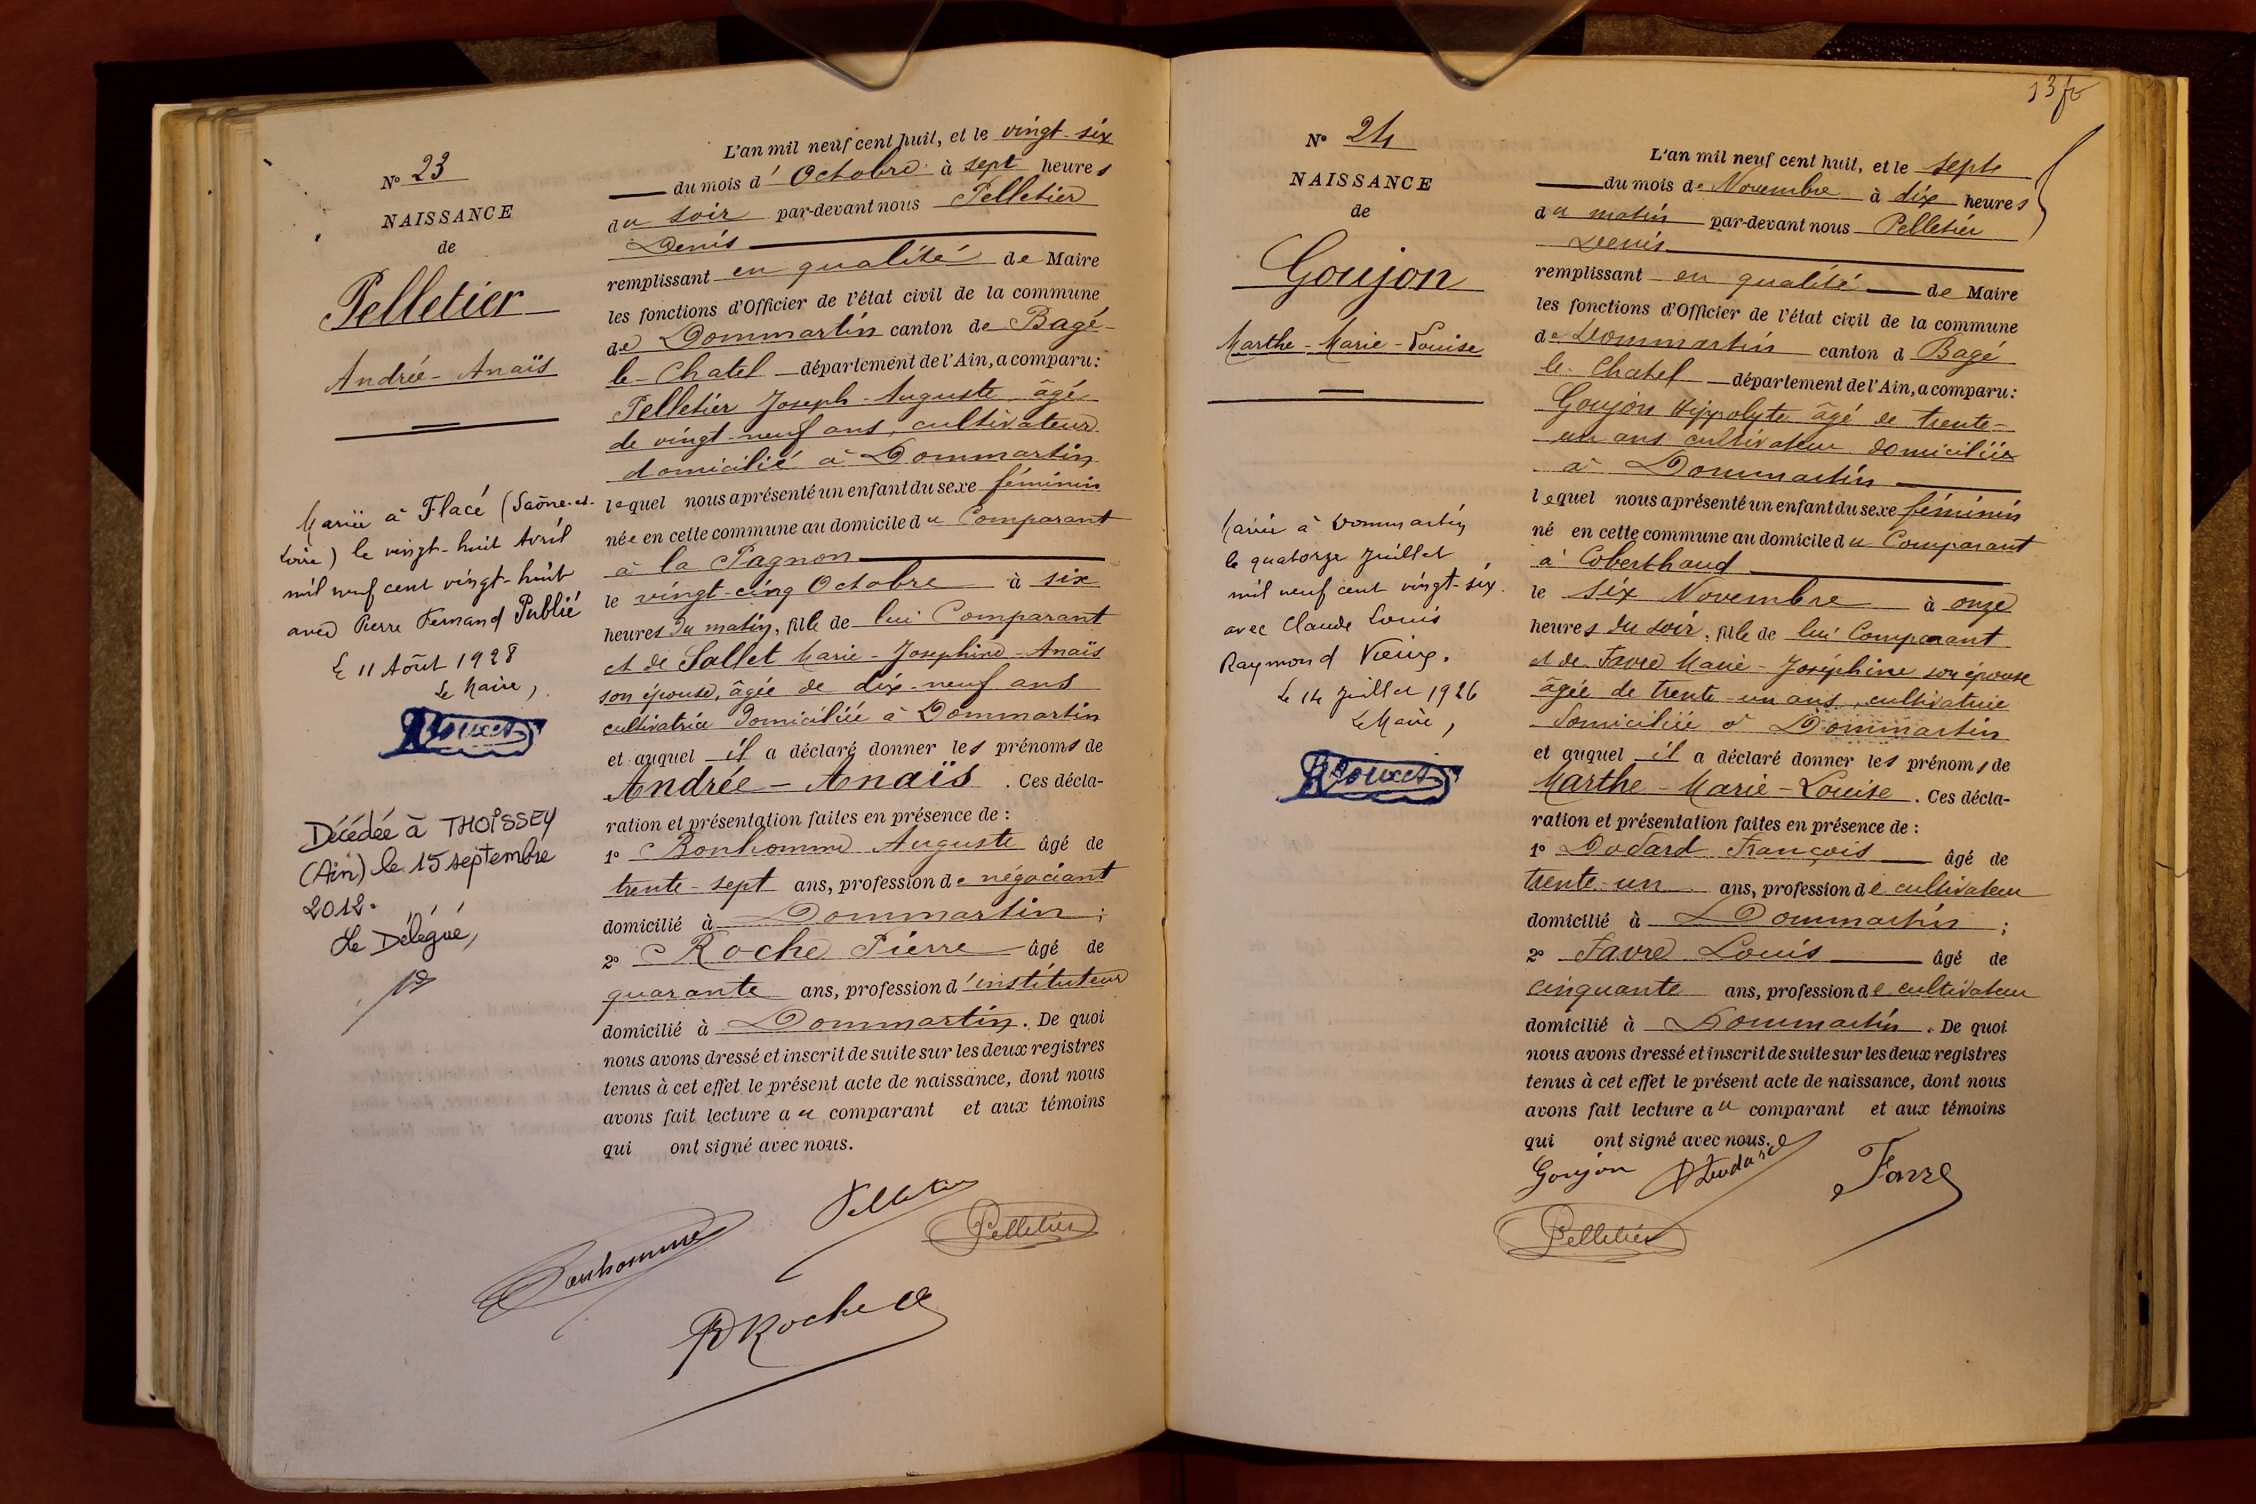 N° 23
NAISSANCE
de
Pelletier
Andrée - Anaïs
Mariée à Flacé (Saône-et-
Loire) le vingt-huit Avril
mil neuf cent vingt-huit
avec Pierre Fernand Publié
Le 11 Août 1928
Le Maire,
Décédée à THOISSEY
(Ain) le 15 septembre
2012.
Le Délégué,
L'an mil neuf cent huit, et le vingt-six
du mois d'Octobre à sept heures
du soir par-devant nous Pelletier
Denis
remplissant en qualité de Maire
les fonctions d'Officier de l'état civil de la commune
de Dommartin canton de Bagé-
le-Chatel département de l'Ain, a comparu:
Pelletier Joseph-Auguste âgé
de vingt-neuf ans, cultivateur
domicilié à Dommartin
lequel nous a présenté un enfant du sexe féminin
née en cette commune au domicile du Comparant
à la Pagnon
le vingt-cinq Octobre à six
heures du matin, fille de lui Comparant
et de Sallet Marie-Joséphine-Anaïs
son épouse, âgée de dix-neuf ans
cultivatrice domiciliée à Dommartin
et auquel il a déclaré donner les prénoms de
Andrée - Anaïs. Ces décla-
ration et présentation faites en présence de :
1° Bonhomme Auguste âgé de
trente-sept ans, profession de négociant
domicilié à Dommartin ;
2° Roche Pierre âgé de
quarante ans, profession d'instituteur
domicilié à Dommartin. De quoi
nous avons dressé et inscrit de suite sur les deux registres
tenus à cet effet le présent acte de naissance, dont nous
avons fait lecture au comparant et aux témoins
qui ont signé avec nous.
Pelletier
Bonhomme
Pelletier
Roche
13
N° 24
NAISSANCE
de
Goujon
Marthe-Marie-Louise
Mariée à Dommartin
le quatorze Juillet
mil neuf cent vingt-six
avec Claude Louis
Raymond
Le 14 Juillet 1926
Le Maire,
L'an mil neuf cent huit, et le sept
du mois de Novembre à dix heures
du matin par-devant nous Pelletier
Denis
remplissant en qualité de Maire
les fonctions d'Officier de l'état civil de la commune
de Dommartin canton d Bagé
le-Chatel département de l'Ain, a comparu:
Goujon Hippolyte âgé de trente-
un ans cultivateur domicilié
à Dommartin
lequel nous a présenté un enfant du sexe féminin
né en cette commune au domicile du Comparant
à Coberthoud
le six Novembre à onze
heures du soir, fille de lui Comparant
et de Favre Marie-Joséphine son épouse
âgée de trente-un ans, cultivatrice
domiciliée à Dommartin
et auquel il a déclaré donner les prénoms de
Marthe-Marie-Louise. Ces décla-
ration et présentation faites en présence de :
1° Dodard François âgé de
trente-un ans, profession de cultivateur
domicilié à Dommartin ;
2° Favre Louis âgé de
cinquante ans, profession de cultivateur
domicilié à Dommartin. De quoi
nous avons dressé et inscrit de suite sur les deux registres
tenus à cet effet le présent acte de naissance, dont nous
avons fait lecture au comparant et aux témoins
qui ont signé avec nous.
Goujon Favre
Pelletier